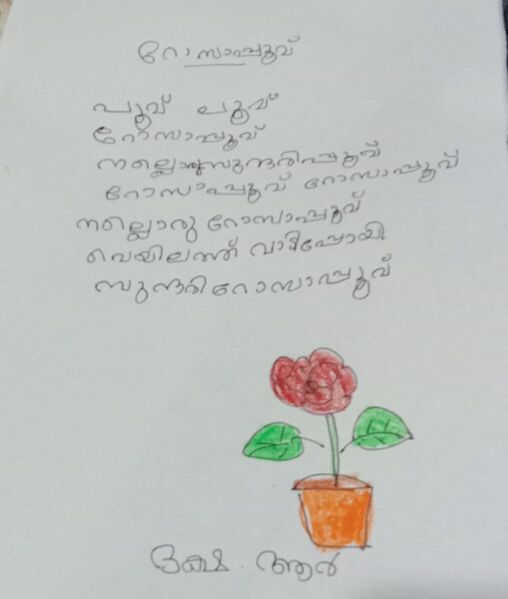 റോസാപ്പൂവ്
പൂവ് പൂവ്
റോസാപ്പൂവ്
നല്ലൊരുസുന്ദരിപ്പൂവ്
റോസാപ്പൂവ് റോസാപ്പൂവ്
നല്ലൊരു റോസാപ്പൂവ്
വെയിലത്ത് വാടിപ്പോയി
സുന്ദരിറോസാപ്പൂവ്
ദക്ഷ ആർ